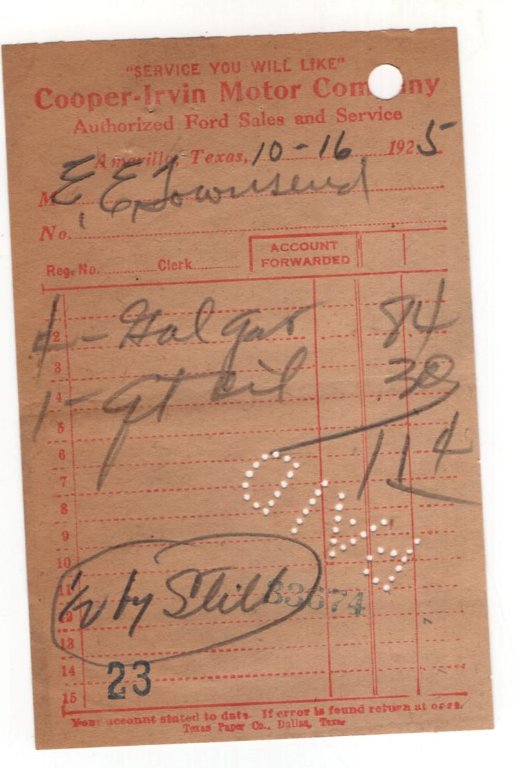 "SERVICE YOU WILL LIKE"
Cooper-Irvin Motor Company
Authorized Ford Sales and Service
Amarillo, Texas, 10-16 1925
M E. E. Townsend
No.
Reg. No. Clerk ACCOUNT FORWARDED
1
2 4 - Gal gas 84
3
4 1 - Qt oil 30
5
6 114
7
8
9
10
11 33674
12 by
13
14 23
15
Your account stated to date. If error is found return at once.
Texas Paper Co., Dallas, Texas
PAID